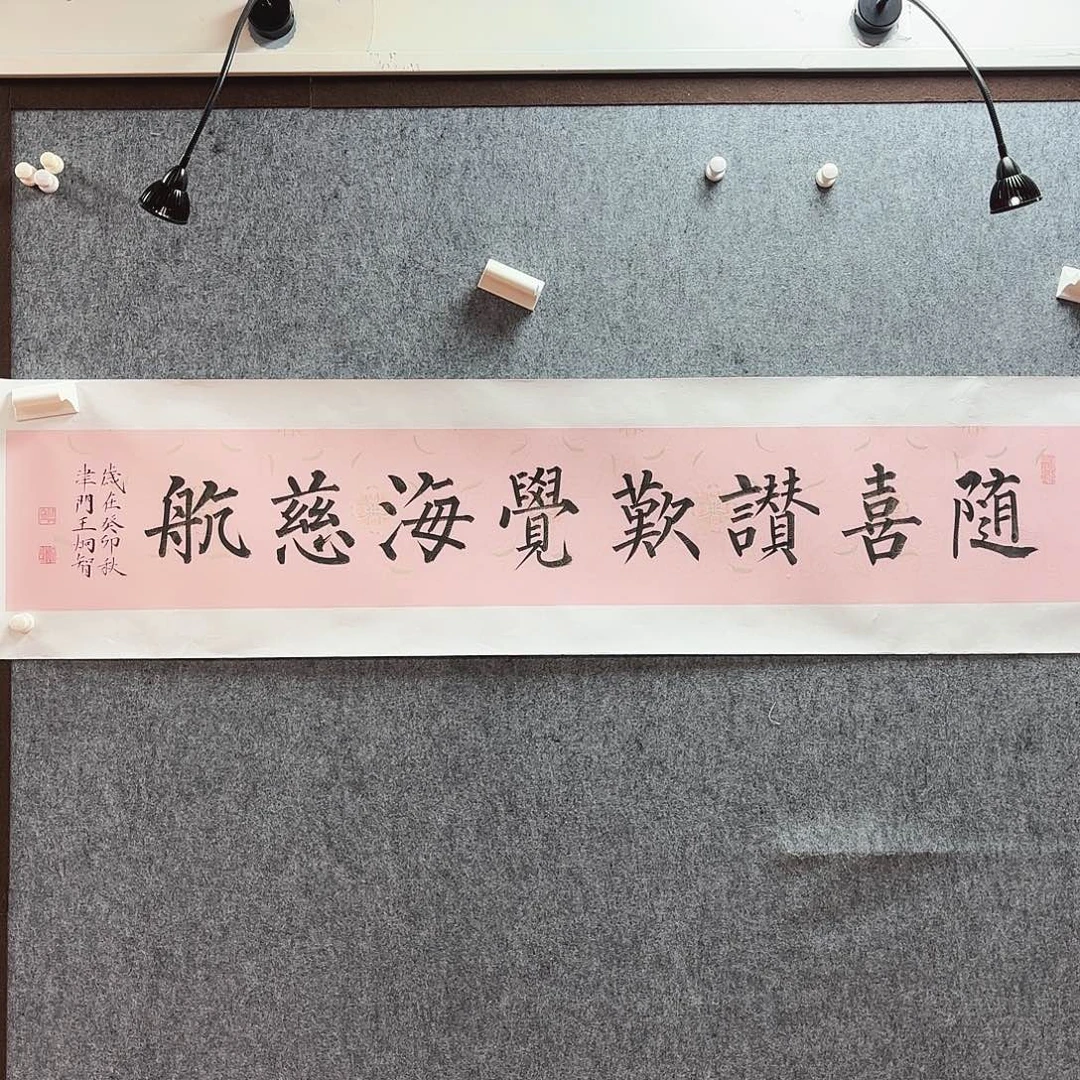 隨喜讃歎覺海慈航
歲在癸卯秋
津門王炯智